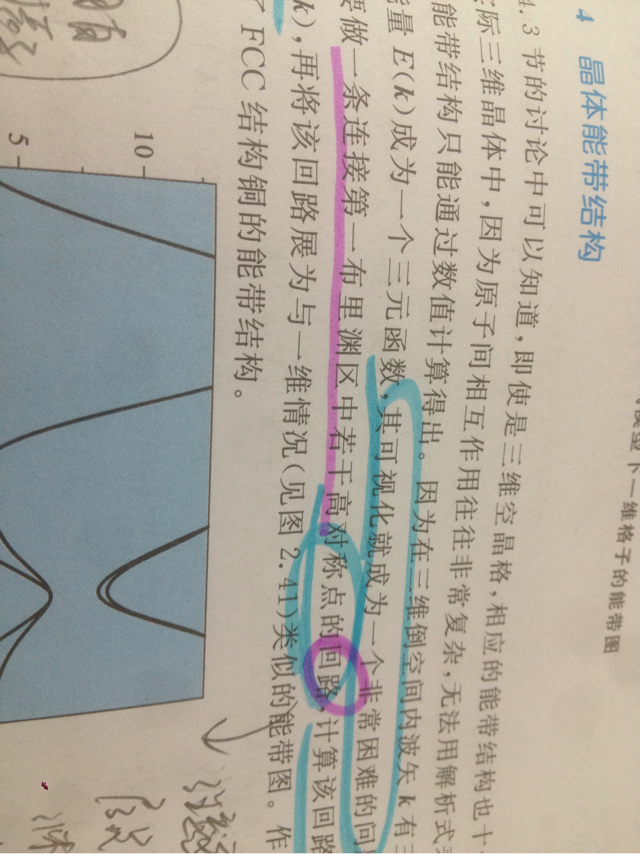 模型下一维格子的能带图
4 晶体能带结构
4.3 节的讨论中可以知道，即使是三维空晶格，相应的能带结构也十
际三维晶体中，因为原子间相互作用往往非常复杂，无法用解析式
能带结构只能通过数值计算得出。因为在三维倒空间内波矢 k 有三
量 E(k)成为一个三元函数，其可视化就成为一个非常困难的问
做一条连接第一布里渊区中若干高对称点的回路，计算该回路
k)，再将该回路展为与一维情况（见图 2.41）类似的能带图。作
FCC 结构铜的能带结构。
10
5